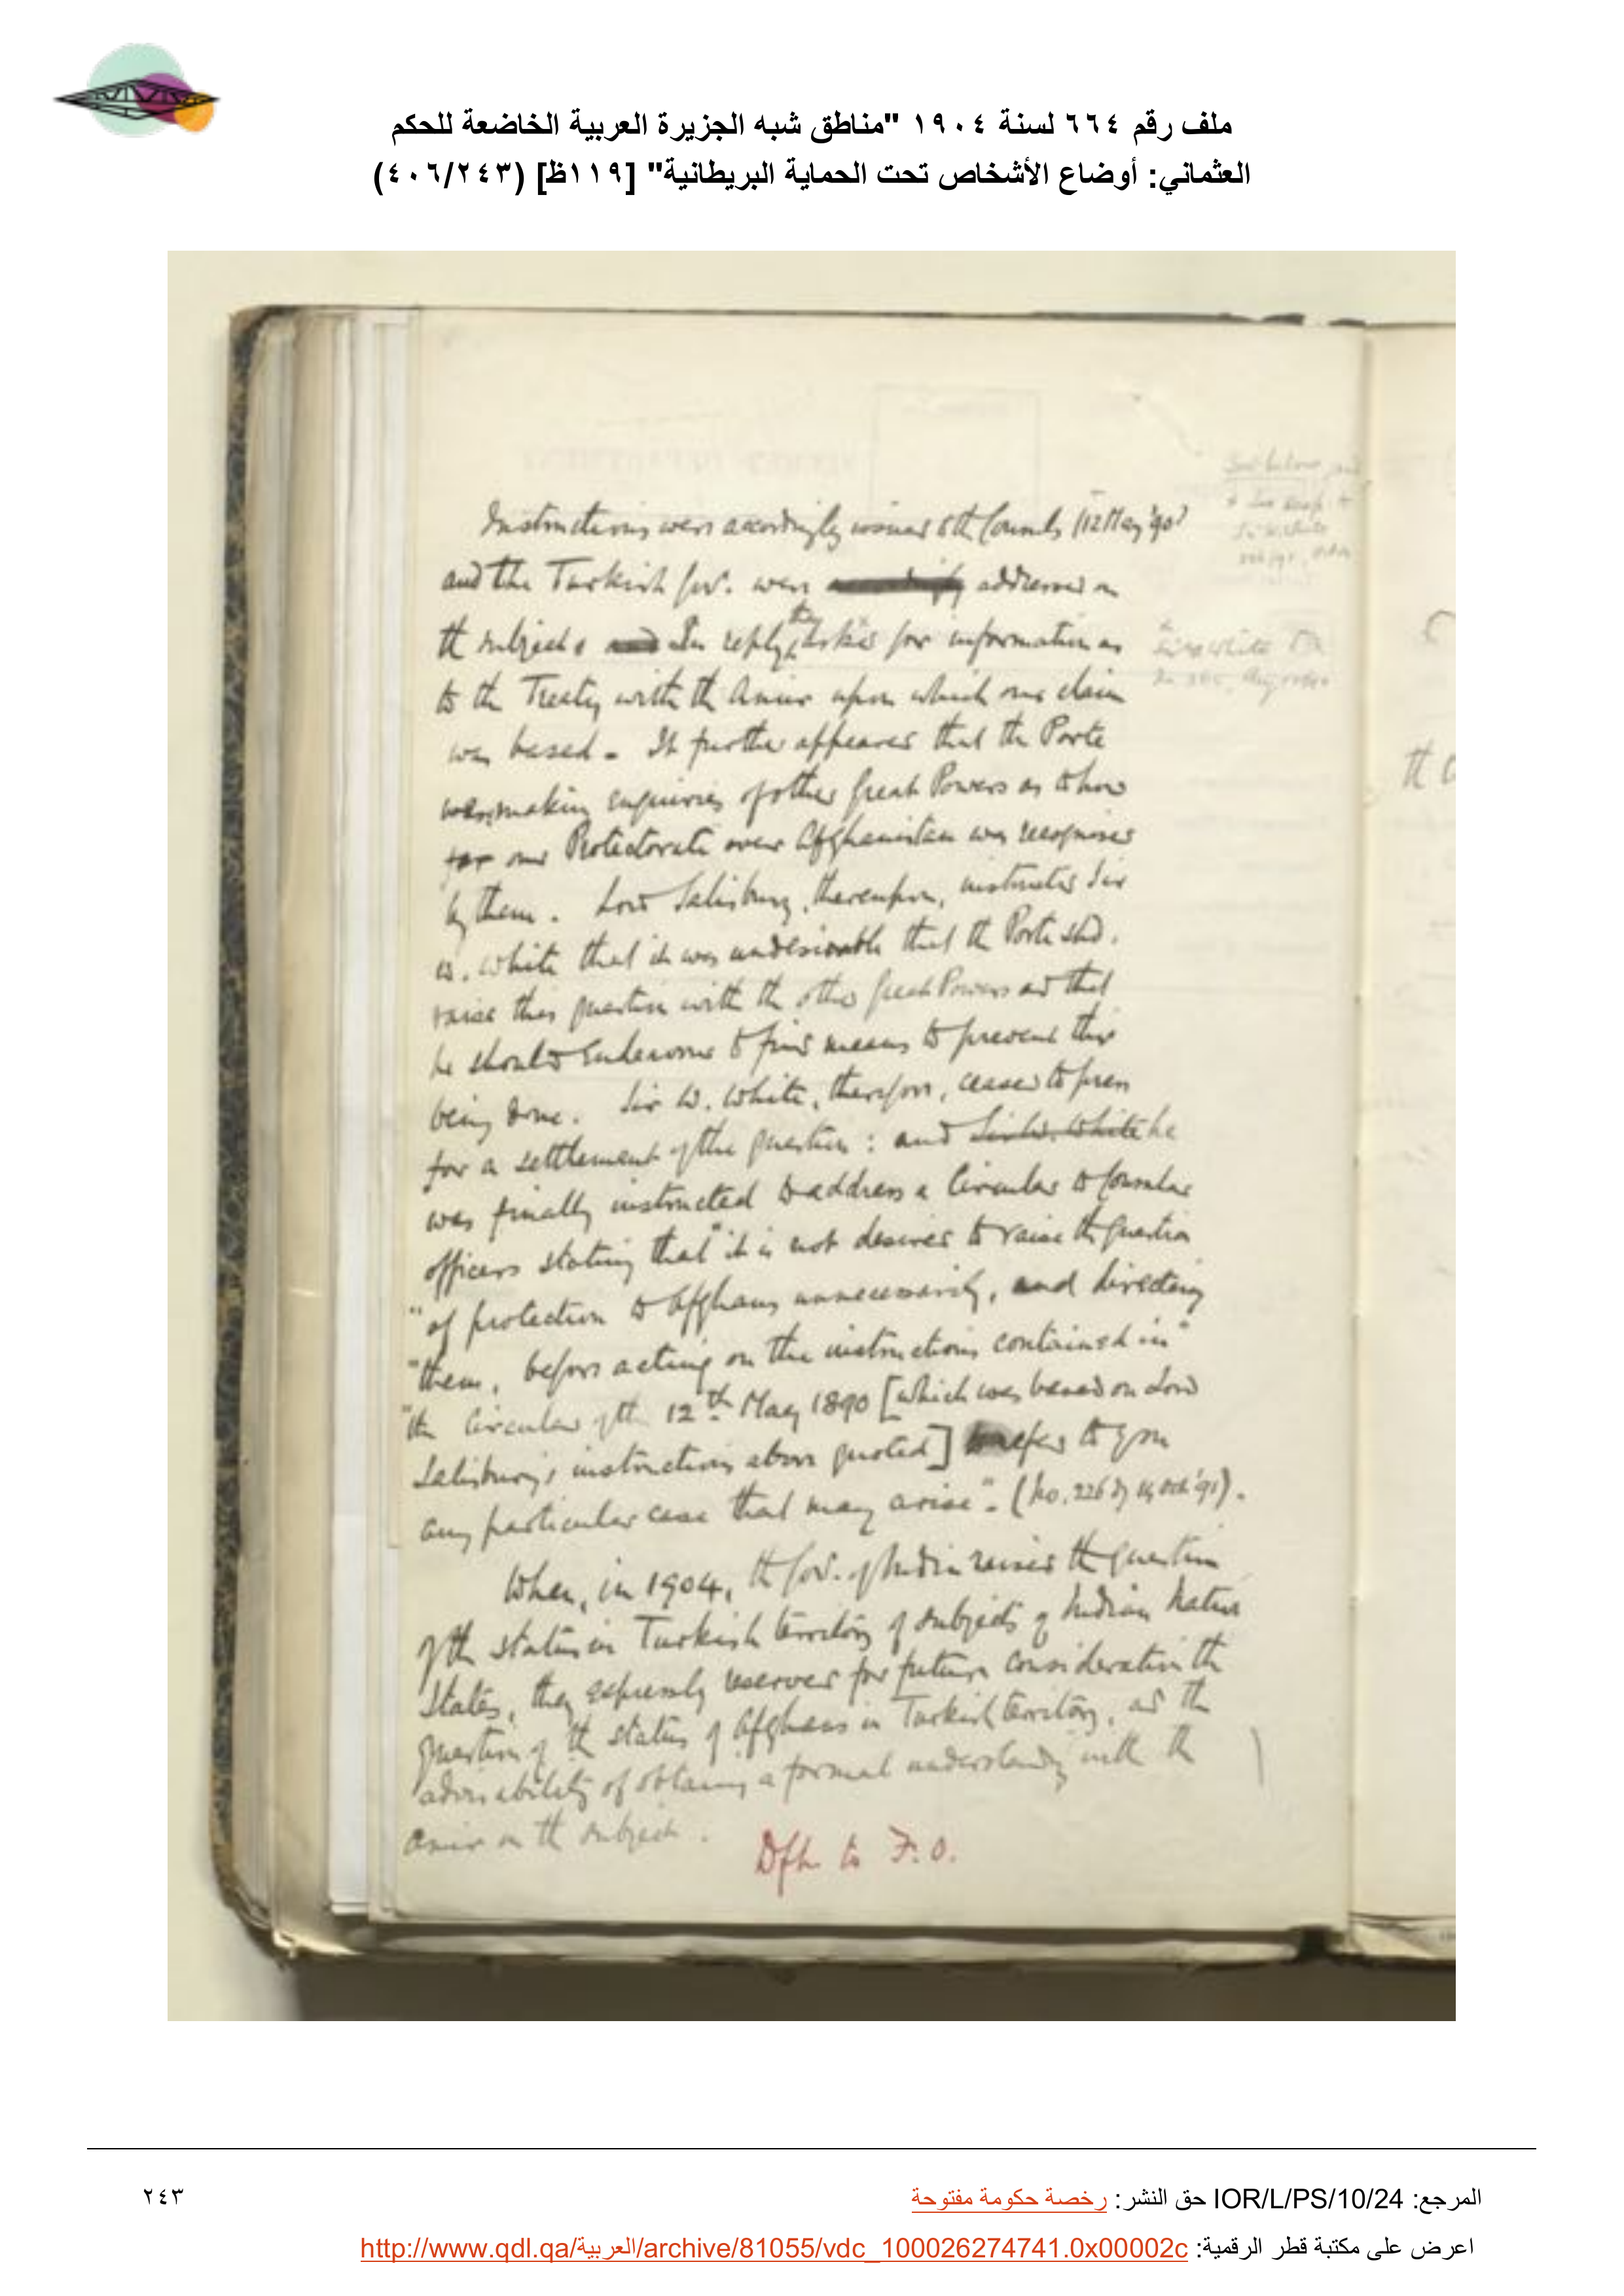 ملف رقم ٦٦٤ لسنة ١٩٠٤ "مناطق شبه الجزيرة العربية الخاضعة للحكم
العثماني: أوضاع الأشخاص تحت الحماية البريطانية" [١١٩ظ] (٤٠٦/٢٤٣)
Instructions were accordingly issued to the Consuls (12 May '90)
and the Turkish Govt. were addressed on
the subject. In reply, they asked for information as
to the Treaty with the Amir upon which our claim
was based - It further appeared that the Porte
was making enquiries of other Great Powers as to how
far our Protectorate over Afghanistan was recognised
by them. Lord Salisbury, thereupon, instructed Sir
W. White that it was undesirable that the Porte shd.
raise this question with the other Great Powers and that
he should endeavour to find means to prevent this
being done. Sir W. White, therefore, ceased to press
for a settlement of the question: and Sir W. White he
was finally instructed to address a Circular to Consular
officers stating that "it is not desired to raise the question
"of protection to Afghans unnecessarily, and directing
"them, before acting on the instructions contained in"
"the Circular of the 12th May 1890 [which was based on Lord
Salisbury's instructions above quoted] to refer to you
any particular case that may arise". (No. 226 Oct '91).
When, in 1904, the Govt. of India raised the question
of the status in Turkish territory of subjects of Indian Native
States, they expressly reserved for future consideration the
question of the status of Afghans in Turkish territory, and the
advisability of obtaining a formal understanding with the
Amir on the subject.
Dft. to F.O.
المرجع: IOR/L/PS/10/24 حق النشر: رخصة حكومة مفتوحة
٢٤٣
اعرض على مكتبة قطر الرقمية: http://www.qdl.qa/العربية/archive/81055/vdc_100026274741.0x00002c